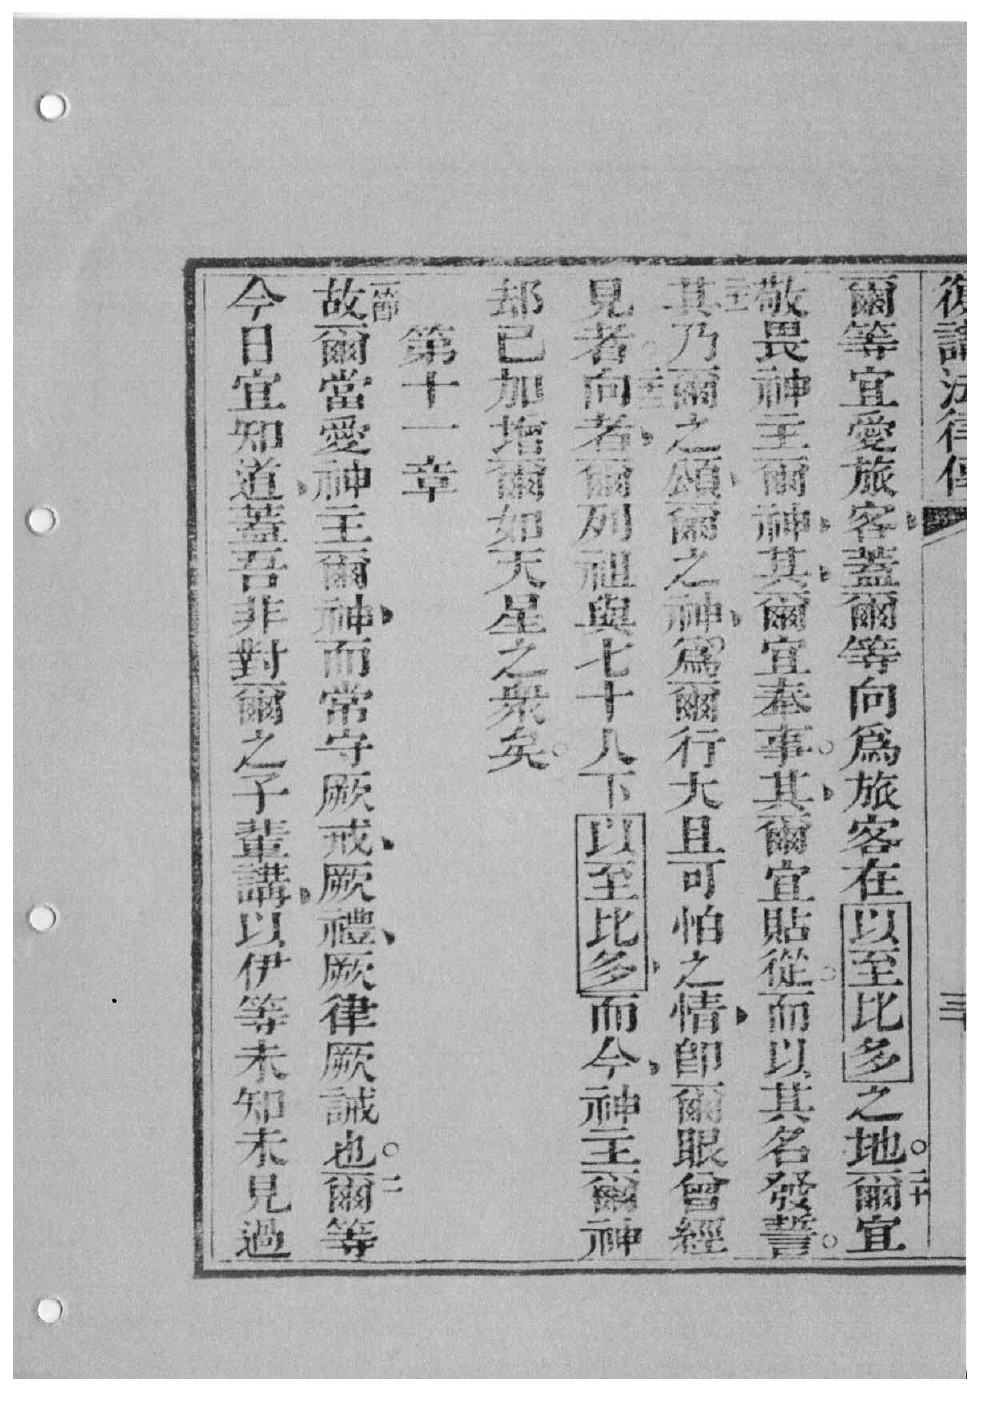 復講法律傳
爾等宜愛旅客、蓋爾等向爲旅客在以至比多之地。二十爾宜
敬畏神主爾神、其、爾宜奉事。其、爾宜貼從。而以其名發誓。
二一其乃爾之頌、爾之神、爲爾行大且可怕之情、卽爾眼曾經
見者。二二向者、爾列祖與七十人下以至比多、而今、神主爾神
却已加增爾如天星之衆矣。
第十一章
一節故爾當愛神主爾神、而常守厥戒、厥禮、厥律厥誡也。二爾等
今日宜知道、蓋吾非對爾之子輩講、以伊等未知未見過